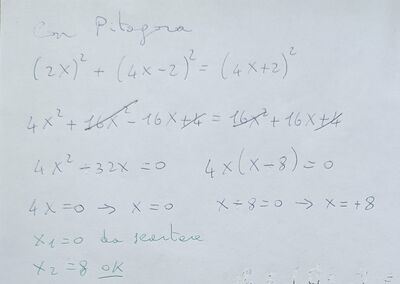 Con Pitagora
(2x)² + (4x-2)² = (4x+2)²
4x² + 16x² - 16x + 4 = 16x² + 16x + 4
4x² - 32x = 0 4x(x-8) = 0
4x = 0 → x = 0 x - 8 = 0 → x = +8
x₁ = 0 da scartare
x₂ = 8 OK